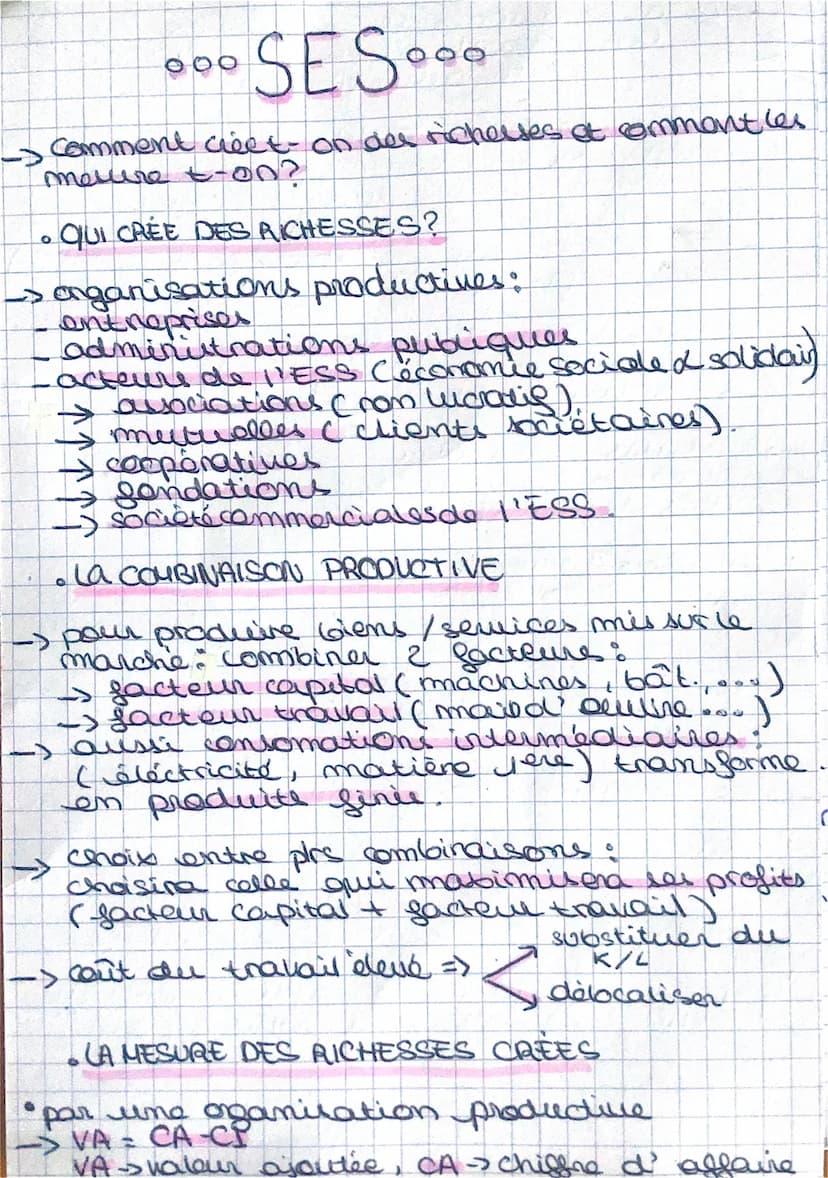 °°° SES °°°
-> Comment crée t-on des richesses et comment les
mesure t-on?
• QUI CRÉE DES RICHESSES?
-> organisations productives:
- entreprises
- administrations publiques
- acteurs de l'ESS (économie sociale & solidair)
-> associations (non lucratif)
-> mutuelles (clients sociétaires).
-> coopératives
-> fondations
-> société commerciales de l'ESS.
• LA COMBINAISON PRODUCTIVE
-> pour produire biens / services mis sur le
marché: combiner 2 facteurs:
-> facteur capital (machines, bât., ...)
-> facteur travail (main d'oeuvre ...)
-> aussi consomations intermédiaires:
(éléctricité, matière 1ère) transforme
en produits finis.
-> choix entre plrs combinaisons:
choisira celle qui maximisera ses profits
(facteur capital + facteur travail)
substituer du
-> coût du travail élevé => K/L
délocaliser
• LA MESURE DES RICHESSES CRÉES
• par une organisation productive
-> VA = CA-CI
VA -> valeur ajoutée, CA -> chiffre d'affaire